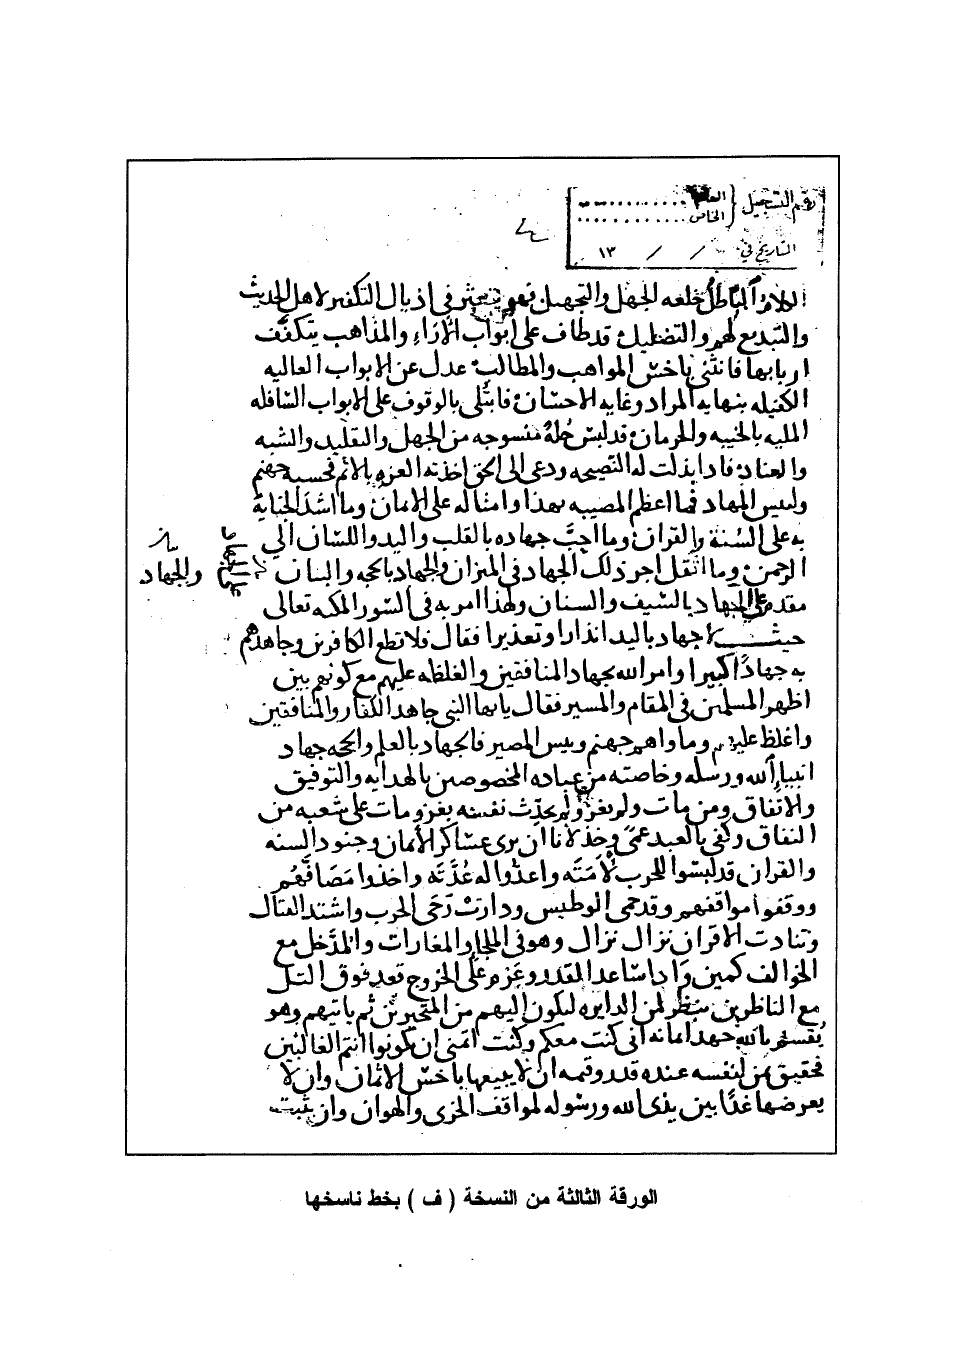 رقم التسجيل { العام ............
الخاص ............
التاريخ في / / ١٣
الباطل خلعه الجهل والتجهيل فهو يتعثر في اذيال التكفير لاهل الحديث
والتبديع لهم والتضليل قد طاف على أبواب الآراء والمذاهب يتكفف
اربابها فانثنى باخس المواهب والمطالب عدل عن الابواب العاليه
الكفيله بنهايه المراد وغايه الاحسان فابتلي بالوقوف على الابواب السافله
المليه بالخيبه والحرمان قد لبس حُلةً منسوجه من الجهل والتقليد والشبه
والعناد فاذا بذلت له النصيحه ودعى الى الحق اخذته العزه بالاثم فحسبه جهنم
ولبيس المهاد فما اعظم المصيبه بهذا وامثاله على الايمان وما اشد الجناية
به على السُنة والقرآن وما احبَّ جهاده بالقلب واليد واللسان الي
الرحمن وما اثقل اجر ذلك الجهاد في الميزان والجهاد بالحجه والبنان
والجهاد
مقدم على الجهاد بالسيف والسنان ولهذا امر به في السور المكيه تعالى
حيث لا جهاد باليد انذارا وتعذيرا فقال فلا تطع الكافرين وجاهدهم
به جهادًا كبيرا وامر الله بجهاد المنافقين والغلظه عليهم مع كونهم بين
اظهر المسلمين في المقام والمسير فقال يايها النبي جاهد الكفار والمنافقين
واغلظ عليهم وماواهم جهنم وبيس المصير فالجهاد بالعلم والحجه جهاد
انبياء الله ورسله وخاصته من عباده المخصوصين بالهدايه والتوفيق
والاتفاق ومن مات ولم يغز ولم يحدّث نفسه بغزو مات على شعبه من
النفاق وكفى بالعبد عمىً وخذلانا ان يرى عساكر الأيمان وجنود السنه
والقران قد لبسوا للحرب لأمَتَه واعدّوا له عُدَّتَه واخذوا مَصَافَّهُم
ووقفوا مواقفهم وقد حمى الوطيس ودارتْ رَحَى الحرب واشتد القتال
وتنادت الاقران نزال نزال وهو في الملجا والمغارات والمدَّخل مع
الخوالف كمين واذا ساعد القدر وعزم على الخروج قعد فوق التل
مع الناظرين ينظر لمن الدايره ليكون اليهم من المتحيزين ثم ياتيهم وهو
يُقسم بالله جهد ايمانه اني كنت معكم وكنت اتمنى ان تكونوا انتم الغالبين
فحقيق بمن لنفسه عنده قدر وقيمه ان لا يبيعها باخس الاثمان وان لا
يعرضها غدًا بين يدي الله ورسوله لمواقف الخزى والهوان وان يثبت
الورقة الثالثة من النسخة ( ف ) بخط ناسخها